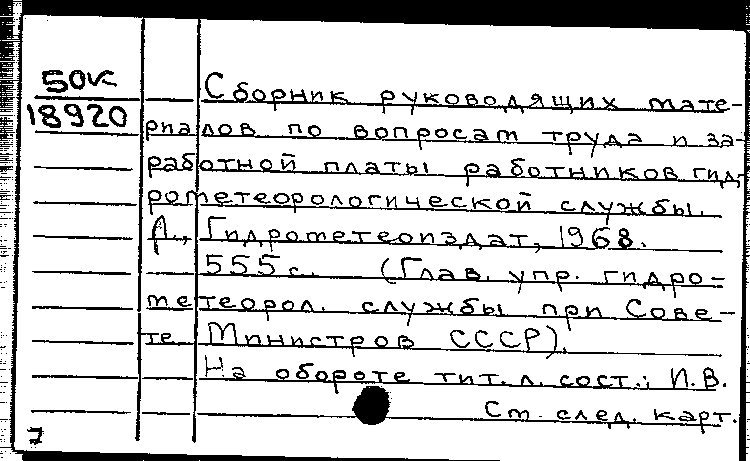 50к
18920
Сборник руководящих мате-
риалов по вопросам труда и за-
работной платы работников гид-
рометеорологической службы.
Л., Гидрометеоиздат, 1968.
555 с. (Глав. упр. гидро-
метеорол. службы при Сове-
те Министров СССР).
На обороте тит. л. сост.: И.В.
См. след. карт.
7